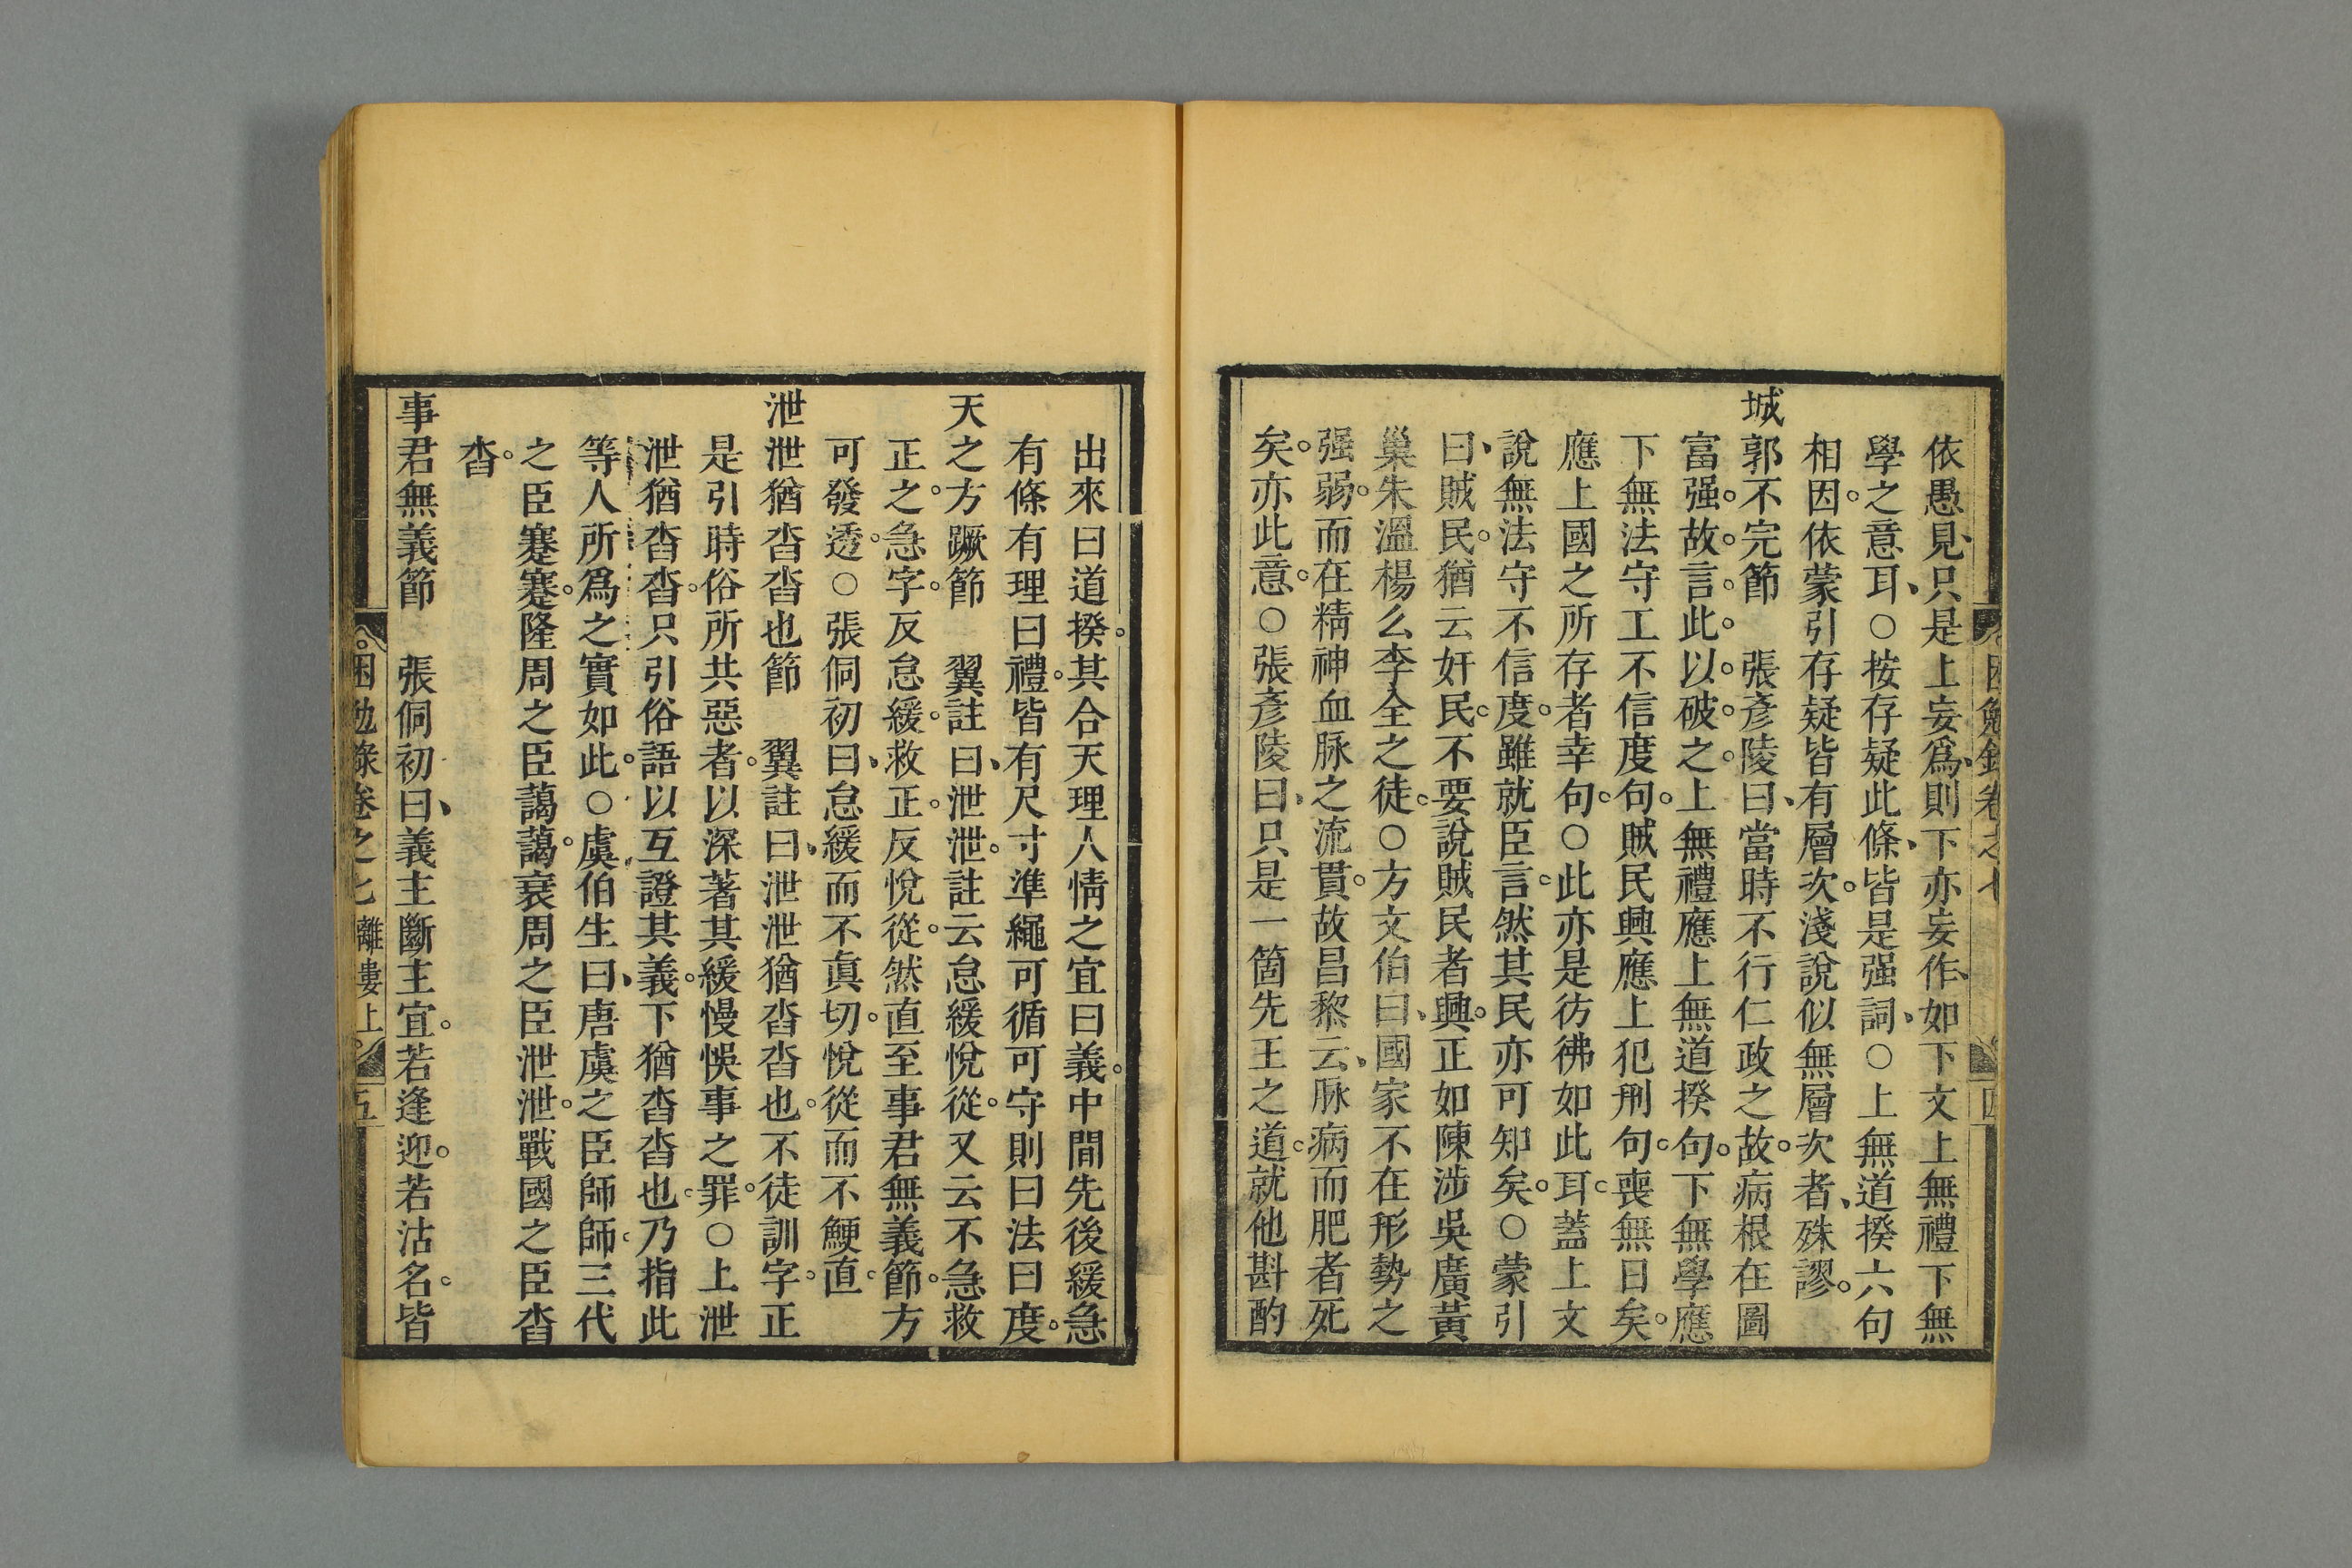 依愚見、只是上妄爲、則下亦妄作、如下文上無禮下無
學之意耳、○按存疑此條、皆是强詞、○上無道揆六句
相因。依蒙引存疑皆有層次。淺說似無層次者、殊謬。
城郭不完節　張彥陵曰、當時不行仁政之故。病根在圖
富强。故。言。此。以。破。之。上無禮應上無道揆句。下無學應
下無法守工不信度句。賊民興應上犯刑句。喪無日矣。
應上國之所存者幸句。○此亦是彷彿如此耳。蓋上文
說無法守不信度。雖就臣言。然其民亦可知矣。○蒙引
曰、賊民。猶云奸民。不要說賊民者興。正如陳涉吳廣黃
巢朱溫楊么李全之徒。○方文伯曰、國家不在形勢之
强弱。而在精神血脉之流貫。故昌黎云、脉病而肥者死
矣。亦此意。○張彥陵曰、只是一箇先王之道。就他斟酌
困勉錄卷之七　四
出來曰道揆。其合天理人情之宜曰義。中間先後緩急
有條有理曰禮。皆有尺寸準繩可循可守則曰法曰度。
天之方蹶節　翼註曰、泄泄。註云怠緩悅從。又云不急救
正之。急字。反怠緩。救正。反悅從。然直至事君無義節。方
可發透。○張侗初曰、怠緩而不眞切。悅從而不鯁直。
泄泄猶沓沓也節　翼註曰、泄泄猶沓沓也。不徒訓字。正
是引時俗所共惡者。以深著其緩慢悞事之罪。○上泄
泄猶沓沓。只引俗語以互證其義。下猶沓沓也。乃指此
等人所爲之實如此。○虞伯生曰、唐虞之臣師師。三代
之臣蹇蹇。隆周之臣藹藹。衰周之臣泄泄。戰國之臣沓
沓。
事君無義節　張侗初曰、義主斷主宜。若逢迎。若沽名。皆
困勉錄卷之七　離婁上　五